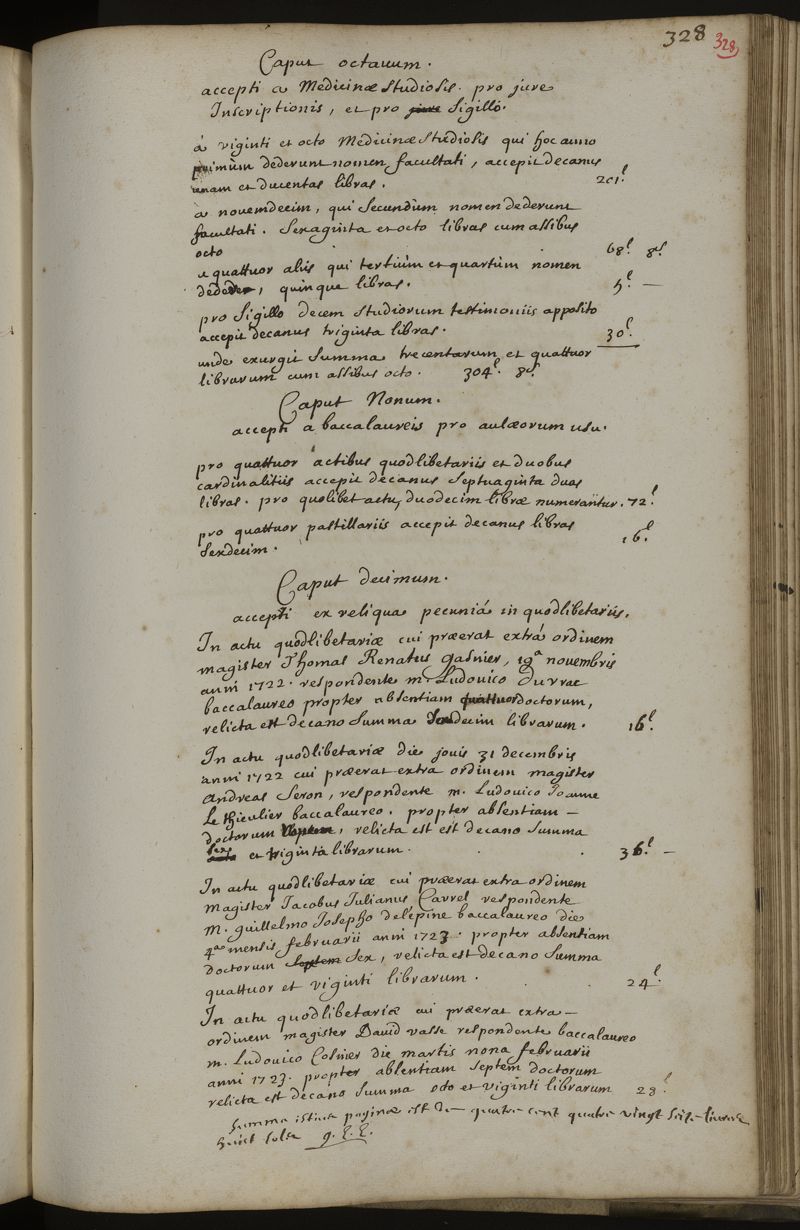 328 328
Caput octavum.
accepti a Medicinæ studiosis. pro jure
Inscriptionis, et pro sigillo.
à viginti et octo Medicinæ studiosis qui hoc anno
primùm dederunt nomen facultati, accepit decanus
unam et ducentas libras. 201.l
a novemdecim, qui secundùm nomen dederunt
facultati. sexaginta et octo libras cum assibus
octo 68.l 8s
a quattuor aliis qui tertiùm et quartùm nomen
dedere, quinque libras. 5.l —
pro sigillo decem studiorum testimoniis apposito
accepit decanus triginta libras. 30.l
unde exurgit summa trecentarum et quattuor
librarum cum assibus octo. 304.l 8s.
Caput Nonum.
accepti a baccalaureis pro aulæorum usu.
pro quattuor actibus quodlibetariis et duobus
cardinalitiis accepit decanus septuaginta duas
libras. pro quolibet actu, duodecim libræ numerantur. 72.l
pro quattuor pastillariis accepit decanus libras
sexdecim. 16.l
Caput decimum.
accepti ex reliqua pecuniá in quodlibetariis.
In actu quodlibetariæ cui præerat extrá ordinem
magister Thomas Renatus gasnier, 19a novembris
anni 1722. respondente m. Ludovico Duvrac
baccalaureo propter absentiam quattuor doctorum,
relicta est decano summa sexdecim librarum. 16.l
In actu quodlibetariæ die jovis 31 decembris
anni 1722 cui præerat extra ordinem magister
Andreas Seron, respondente m. Ludovico Joanne
Le thieulier baccalaureo. propter absentiam —
doctorum, relicta est est decano summa
sex et triginta librarum. 36.l —
In actu quodlibetariæ cui præerat extra ordinem
magister Jacobus Julianus Carrel respondente
M. guillelmo Josepho delépine baccalaureo die
4ae mensis februarii anni 1723. propter absentiam
doctorum septem sex, relicta est decano summa
quattuor et viginti librarum. 24.l
In actu quodlibetariæ cui præerat extra —
ordinem magister David vasse respondente baccalaureo
m. Ludovico Cosnier die martis nona februarii
anni 1723. propter absentiam septem doctorum
relicta est decano summa octo et viginti librarum 28.l
summa istius paginæ est de quatre cent quatre vingt seize livres
huit sols